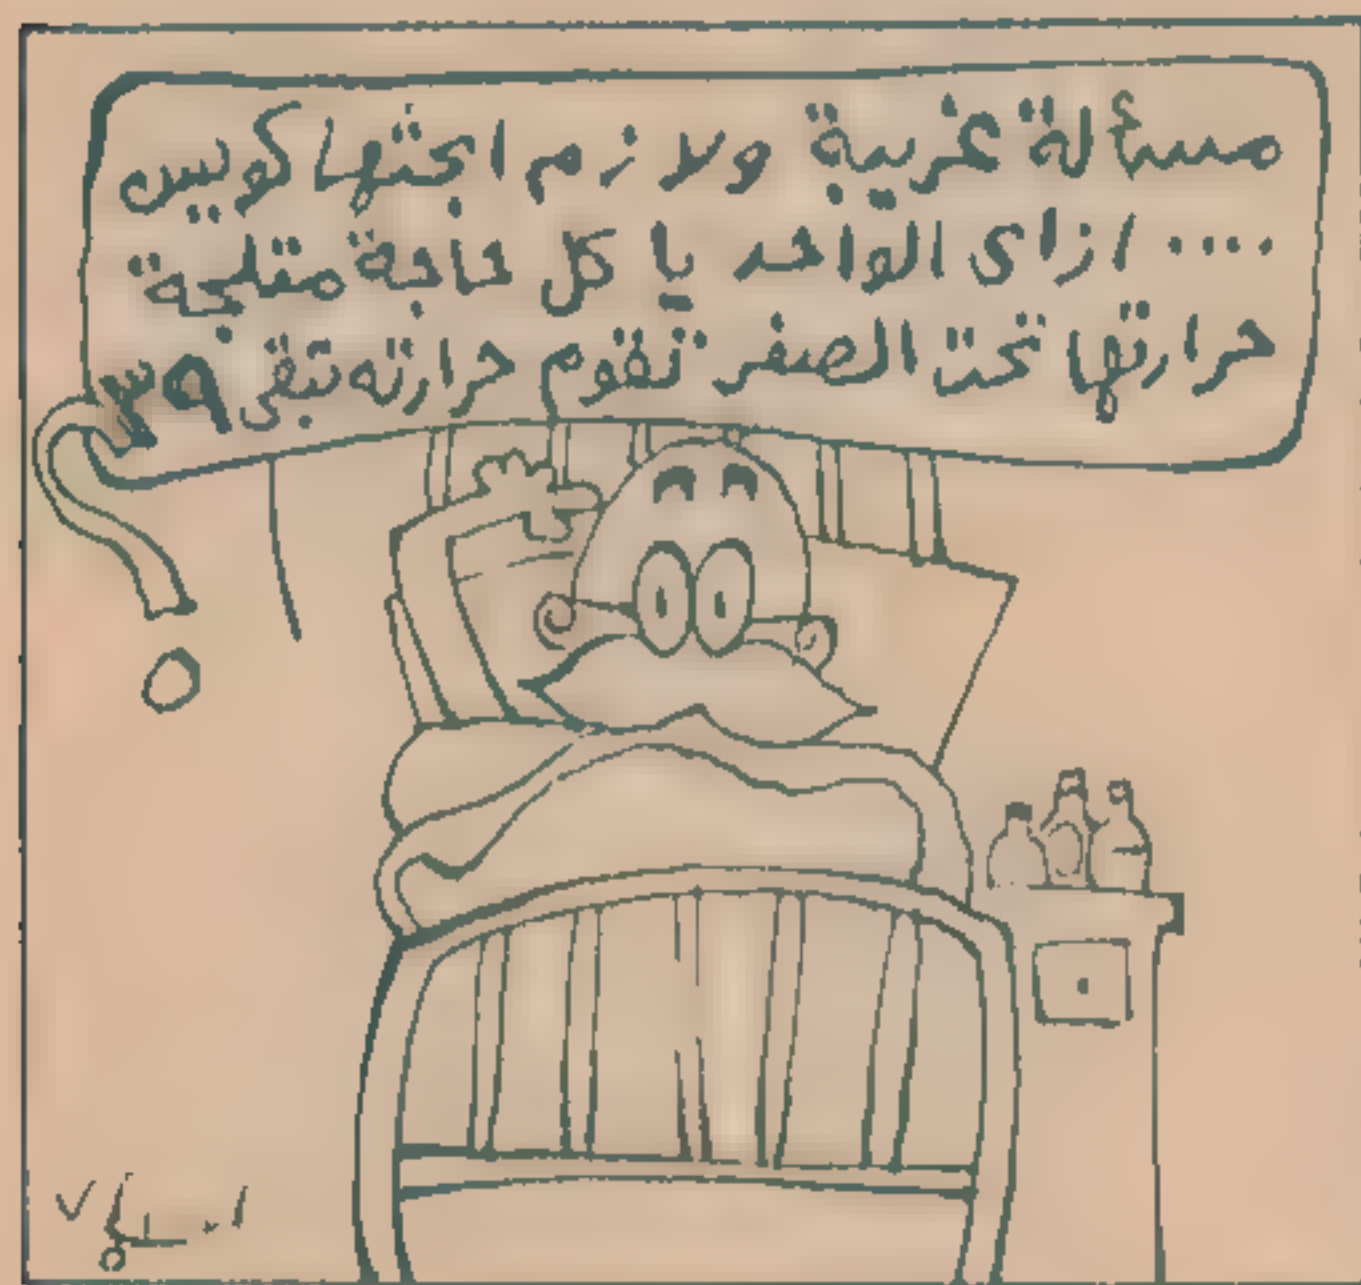 مسألة غريبة ولازم ابحثها كويس
.... ازاى الواحد ياكل حاجة متلجة
حرارتها تحت الصفر تقوم حرارته تبقى ٣٩
؟